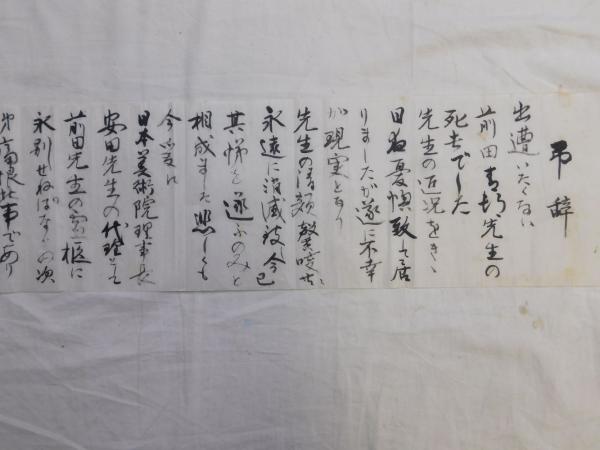 弔辞
出遭いたくない
前田青邨先生の
死去でした
先生の近況をきゝ
日夜憂慮致して居
りましたが遂に不幸
が現実となり
先生の清顔謦咳せ
永遠に消滅被今已
其悌を逐ふのみと
相成ました悲しくも
今茲に
日本美術院理事長
安田先生の代理として
前田先生の霊柩に
永別せねばならぬ次
第痛恨北事であり